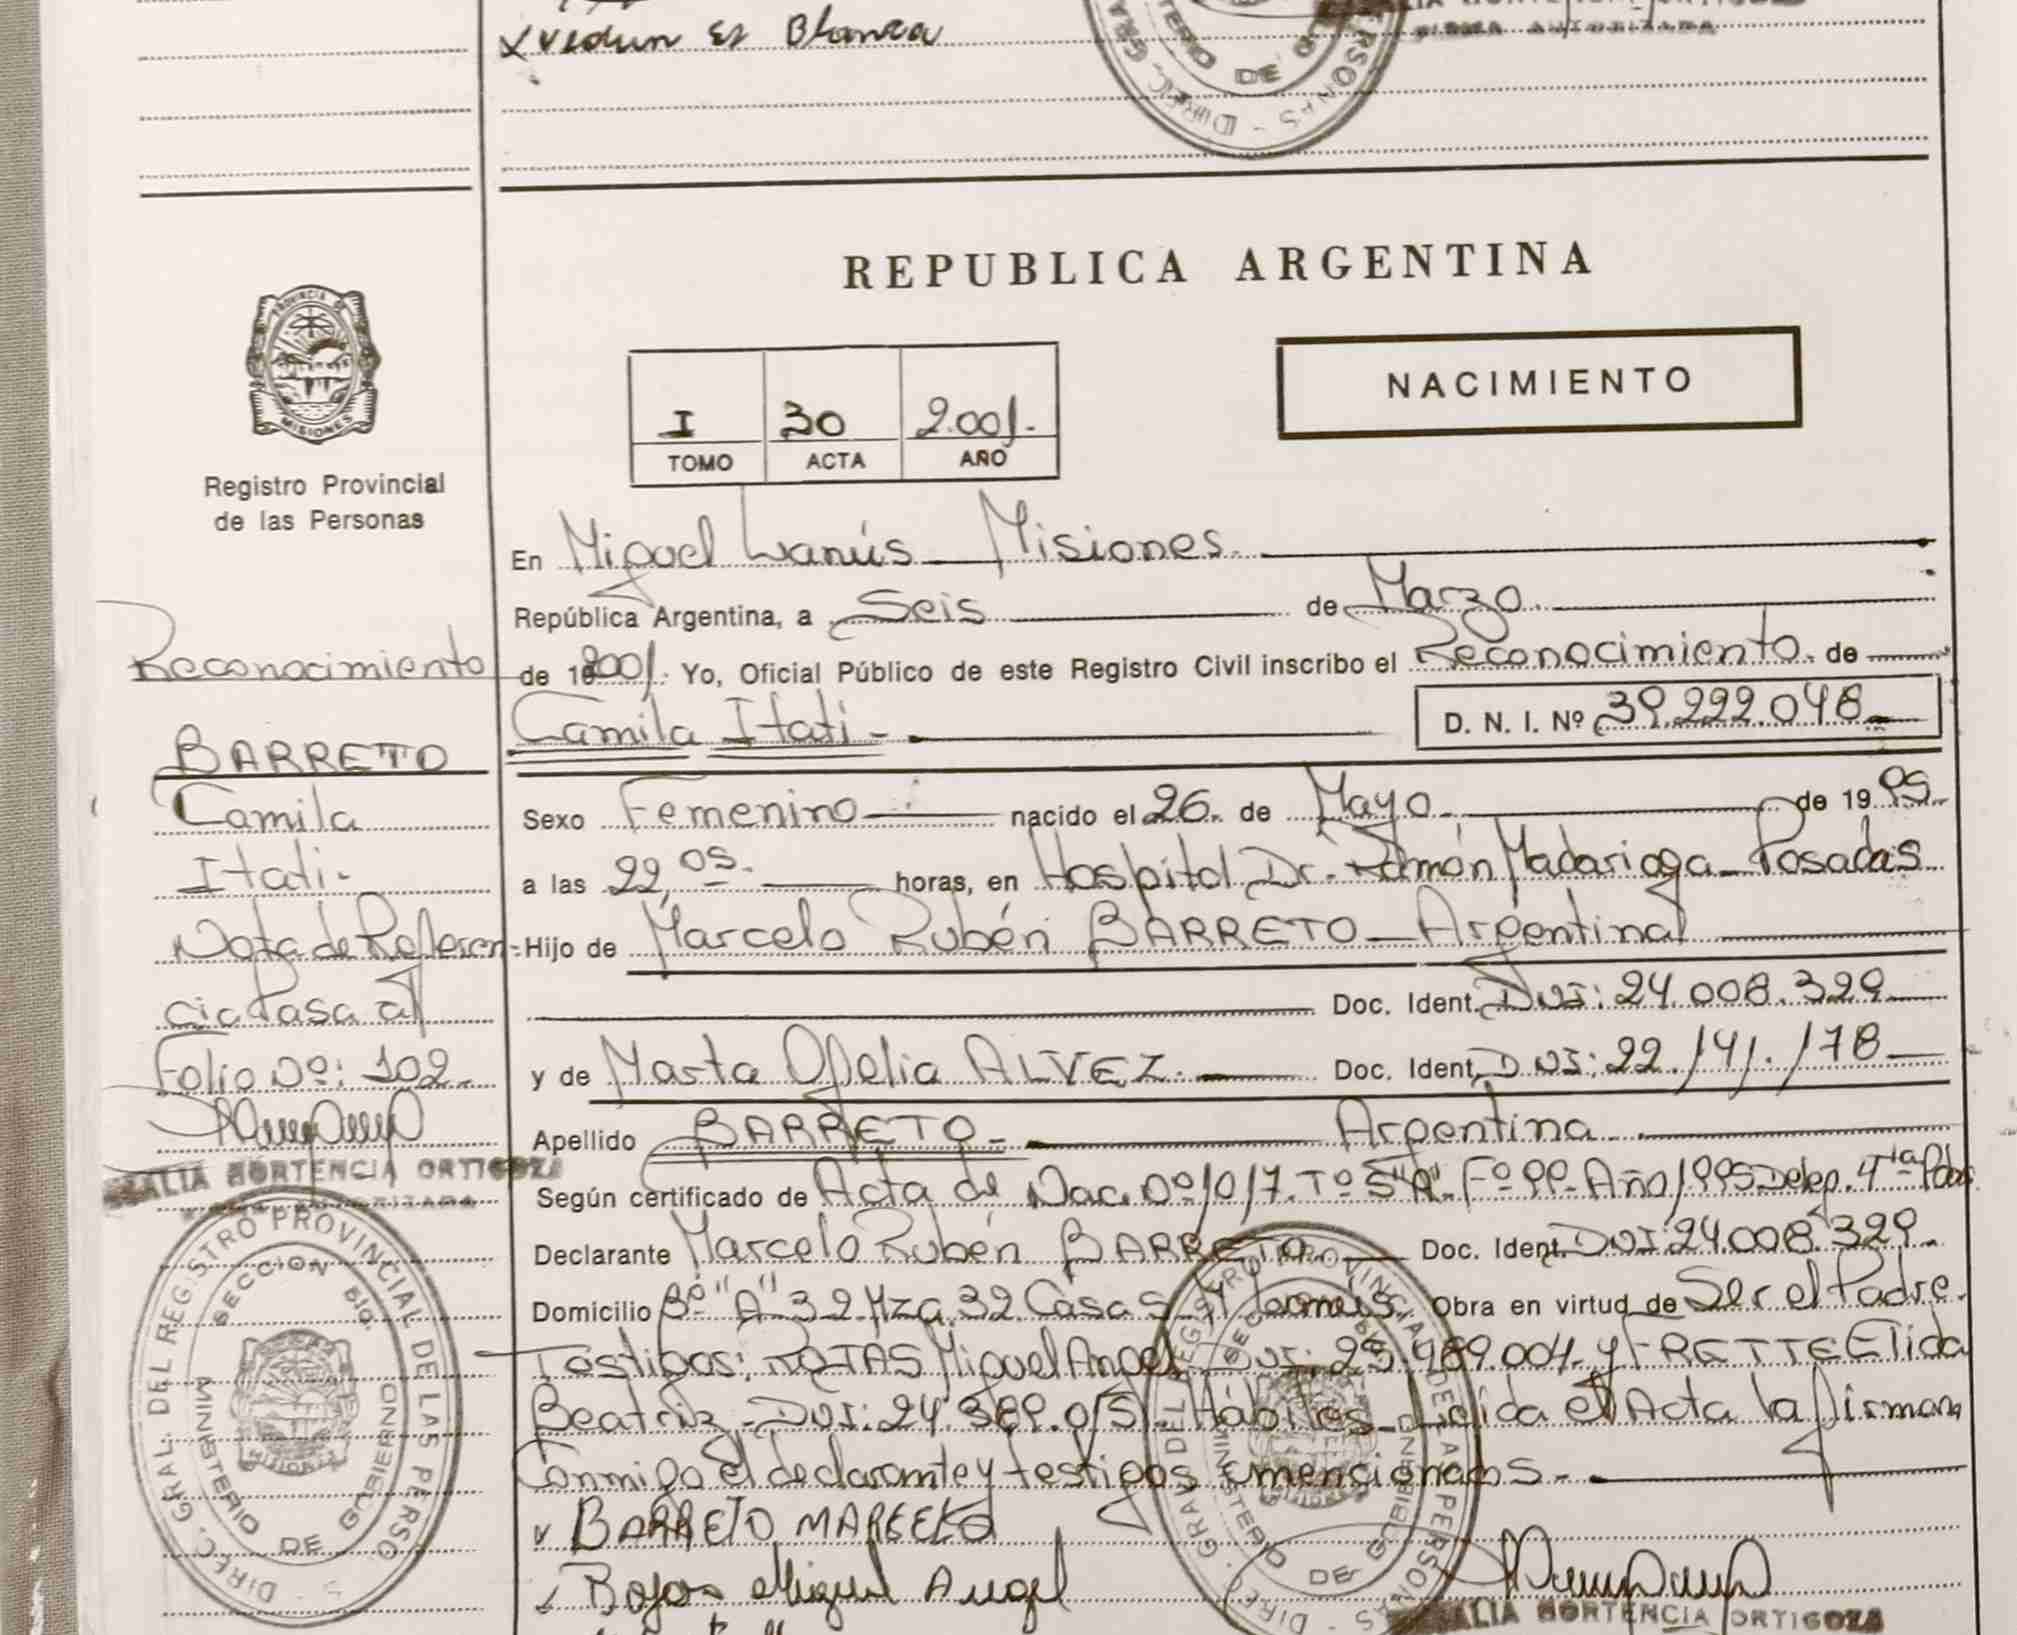 Es Blanca
FIRMA AUTORIZADA
REPUBLICA ARGENTINA
NACIMIENTO
I 30 2.001.-
TOMO ACTA AÑO
PROVINCIA DE
MISIONES
Registro Provincial
de las Personas
En Miguel Lanús - Misiones.
República Argentina, a Seis de Marzo.
de 19 2001. Yo, Oficial Público de este Registro Civil inscribo el Reconocimiento. de
Camila Itati.- D. N. I. Nº 39.222.048
Sexo Femenino nacido el 26. de Mayo. de 19 95.
a las 22,05. horas, en Hospital Dr. Ramón Madariaga - Posadas
Hijo de Marcelo Rubén BARRETO - Argentina
Doc. Ident. DNI: 24.008.329
y de Marta Ofelia ALVEZ. Doc. Ident. DNI: 22.141.178
Apellido BARRETO - Argentina
Según certificado de Acta de Nac. Nº 1017. Tº 5"A". Fº 99. Año 1995 Deleg. 4ta Pdas
Declarante Marcelo Rubén BARRETO. Doc. Ident. DNI: 24.008.329.
Domicilio Bº "A" 3-2 Mza. 32 Casa 5 - M. Lanús. Obra en virtud de Ser el Padre.
Testigos: Miguel Angel DNI: 489.004. y FRETTE Elida
Beatriz - DNI: 24. .015. Hábiles - Leida el Acta la firman
Conmigo el declarante y testigos mencionados.-
BARRETO MARCELO
Miguel Angel
ALIA HORTENCIA ORTIGOZA
Reconocimiento
BARRETO
Camila
Itati.-
Nota de Referen-
cia Pasa al
Folio Nº: 102.
ALIA HORTENCIA ORTIGOZA
DIREC. GRAL. DEL REGISTRO PROVINCIAL DE LAS PERSONAS
MINISTERIO DE GOBIERNO
SECCION
MISIONES
DIREC. GRAL. DEL REGISTRO PROVINCIAL DE LAS PERSONAS
MINISTERIO DE GOBIERNO